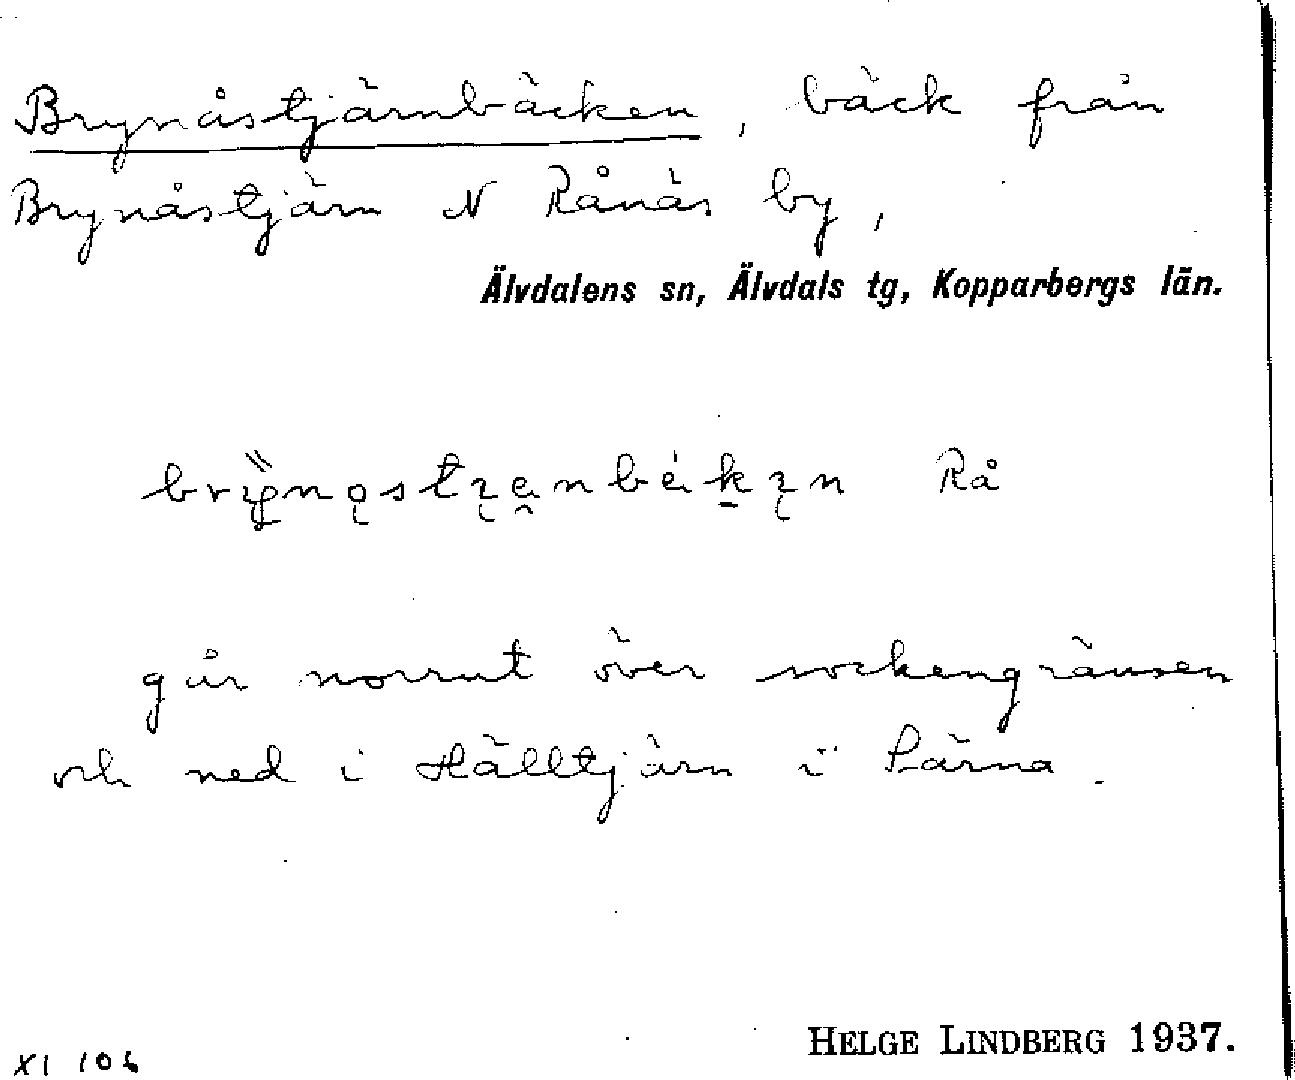 Brynåstjärnbäcken, bäck från
Brynåstjärn N Rånäs by,
Älvdalens sn, Älvdals tg, Kopparbergs län.
Rå
går norrut över sockengränsen
och ned i Hälltjärn i Särna.
HELGE LINDBERG 1937.
XI 106